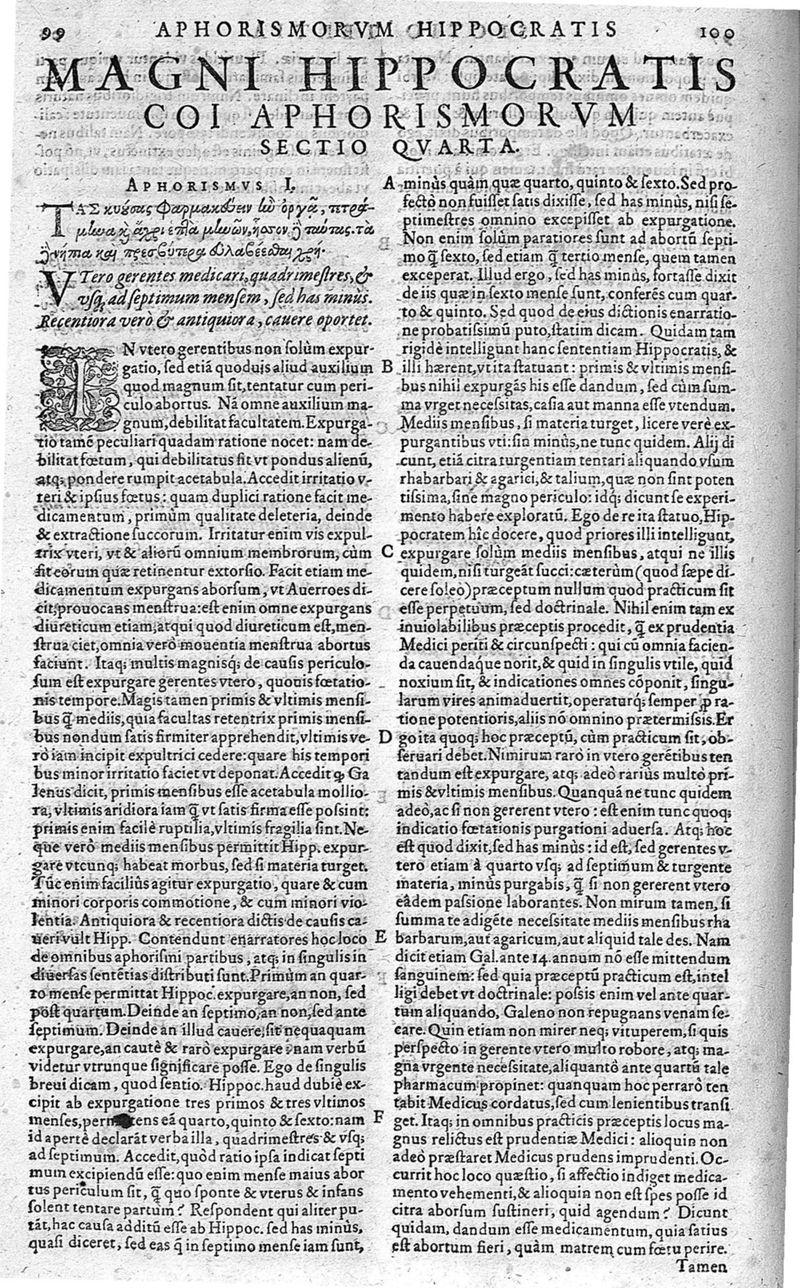 99 APHORISMORVM HIPPOCRATIS 100
MAGNI HIPPOCRATIS
COI APHORISMORVM
SECTIO QVARTA.
APHORISMVS I,
ΤΑΣ κυούσας φαρμακεύειν ἢν ὀργᾷ, τετρά-
μηνα καὶ ἄχρι ἑπτὰ μηνῶν, ἧσσον δὲ ταύτας. τὰ
δὲ νήπια καὶ πρεσβύτερα εὐλαβέεσθαι χρή·
VTero gerentes medicari, quadrimestres, &
vsq; ad septimum mensem, sed has minùs.
Recentiora verò & antiquiora, cauere oportet.
IN vtero gerentibus non solùm expur-
gatio, sed etiã quoduis aliud auxilium
quod magnum sit, tentatur cum peri-
culo abortus. Nã omne auxilium ma-
gnum, debilitat facultatem. Expurga-
tio tamẽ peculiari quadam ratione nocet: nam de-
bilitat fœtum, qui debilitatus fit vt pondus alienũ,
atq; pondere rumpit acetabula. Accedit irritatio v-
teri & ipsius fœtus: quam duplici ratione facit me-
dicamentum, primùm qualitate deleteria, deinde
& extractione succorum. Irritatur enim vis expul-
trix vteri, vt & aliorũ omnium membrorum, cùm
fit eorum quæ retinentur extorsio. Facit etiam me-
dicamentum expurgans aborsum, vt Auerroes di-
cit, prouocans menstrua: est enim omne expurgans
diureticum etiam, atqui quod diureticum est, men-
strua ciet, omnia verò mouentia menstrua abortus
faciunt. Itaq; multis magnisq; de causis periculo-
sum est expurgare gerentes vtero, quouis fœtatio-
nis tempore. Magis tamen primis & vltimis mensi-
bus q̃ mediis, quia facultas retentrix primis mensi-
bus nondum satis firmiter apprehendit, vltimis ve-
rò iam incipit expultrici cedere: quare his tempori
bus minor irritatio faciet vt deponat. Accedit ꝙ Ga
lenus dicit, primis mensibus esse acetabula mollio-
ra, vltimis aridiora iam q̃ vt satis firma esse possint:
primis enim facilè ruptilia, vltimis fragilia sint. Ne-
que verò mediis mensibus permittit Hipp. expur-
gare vtcunq; habeat morbus, sed si materia turget.
Tũc enim faciliùs agitur expurgatio, quare & cum
minori corporis commotione, & cum minori vio-
lentia. Antiquiora & recentiora dictis de causis ca-
ueri vult Hipp. Contendunt enarratores hoc loco
de omnibus aphorismi partibus, atq; in singulis in
diuersas sentẽtias distributi sunt. Primùm an quar-
to mense permittat Hippoc. expurgare, an non, sed
pòst quartum. Deinde an septimo, an non, sed ante
septimum. Deinde an illud cauere, sit nequaquam
expurgare, an cautè & rarò expurgare: nam verbũ
videtur vtrunque significare posse. Ego de singulis
breui dicam, quod sentio. Hippoc. haud dubiè ex-
cipit ab expurgatione tres primos & tres vltimos
menses, permittens eã quarto, quinto & sexto: nam
id apertè declarãt verba illa, quadrimestres & vsq;
ad septimum. Accedit, quòd ratio ipsa indicat septi
mum excipiendũ esse: quo enim mense maius abor
tus periculum sit, q̃ quo sponte & vterus & infans
solent tentare partum? Respondent qui aliter pu-
tãt, hac causa additũ esse ab Hippoc. sed has minùs,
quasi diceret, sed eas q̃ in septimo mense iam sunt,
A minùs quàm quæ quarto, quinto & sexto. Sed pro-
fectò non fuisset satis dixisse, sed has minùs, nisi se-
ptimestres omnino excepisset ab expurgatione.
Non enim solùm paratiores sunt ad abortũ septi-
mo q̃ sexto, sed etiam q̃ tertio mense, quem tamen
exceperat. Illud ergo, sed has minùs, fortasse dixit
de iis quæ in sexto mense sunt, conferẽs cum quar-
to & quinto. Sed quod de eius dictionis enarratio-
ne probatissimũ puto, statim dicam. Quidam tam
rigidè intelligunt hanc sententiam Hippocratis, &
B illi hærent, vt ita statuant: primis & vltimis mensi-
bus nihil expurgãs his esse dandum, sed cùm sum-
ma vrget necessitas, casia aut manna esse vtendum.
Mediis mensibus, si materia turget, licere verè ex-
purgantibus vti: sin minùs, ne tunc quidem. Alij di
cunt, etiã citra turgentiam tentari aliquando vsum
rhabarbari & agarici, & talium, quæ non sint poten
tissima, sine magno periculo: idq; dicunt se experi-
mento habere exploratũ. Ego de re ita statuo, Hip-
pocratem hîc docere, quod priores illi intelligunt,
C expurgare solùm mediis mensibus, atqui ne illis
quidem, nisi turgeãt succi: cæterùm (quod sæpe di-
cere soleo) præceptum nullum quod practicum sit
esse perpetuum, sed doctrinale. Nihil enim tam ex
inuiolabilibus præceptis procedit, q̃ ex prudentia
Medici periti & circunspecti: qui cũ omnia facien-
da cauendaque norit, & quid in singulis vtile, quid
noxium sit, & indicationes omnes cõponit, singu-
larum vires animaduertit, operaturq; semper ꝓ ra-
tione potentioris, aliis nõ omnino prætermissis. Er
D go ita quoq; hoc præceptũ, cùm practicum sit, ob-
seruari debet. Nimirum rarò in vtero gerẽtibus ten
tandum est expurgare, atq; adeò rariùs multò pri-
mis & vltimis mensibus. Quanquã ne tunc quidem
adeò, ac si non gererent vtero: est enim tunc quoq;
indicatio fœtationis purgationi aduersa. Atq; hoc
est quod dixit, sed has minùs: id est, sed gerentes v-
tero etiam à quarto vsq; ad septimũ & turgente
materia, minùs purgabis, q̃ si non gererent vtero
eâdem passione laborantes. Non mirum tamen, si
summa te adigẽte necessitate mediis mensibus rha
E barbarum, aut agaricum, aut aliquid tale des. Nam
dicit etiam Gal. ante 14. annum nõ esse mittendum
sanguinem: sed quia præceptũ practicum est, intel
ligi debet vt doctrinale: possis enim vel ante quar-
tum aliquando, Galeno non repugnans venam se-
care. Quin etiam non mirer neq; vituperem, si quis
perspecto in gerente vtero multo robore, atq; ma-
gna vrgente necessitate, aliquantò ante quartũ tale
pharmacum propinet: quanquam hoc perrarò ten
tabit Medicus cordatus, sed cum lenientibus transi
F get. Itaq; in omnibus practicis præceptis locus ma-
gnus relictus est prudentiæ Medici: alioquin non
adeò præstaret Medicus prudens imprudenti. Oc-
currit hoc loco quæstio, si affectio indiget medica-
mento vehementi, & alioquin non est spes posse id
citra aborsum sustineri, quid agendum? Dicunt
quidam, dandum esse medicamentum, quia satius
est abortum fieri, quàm matrem cum fœtu perire.
Tamen